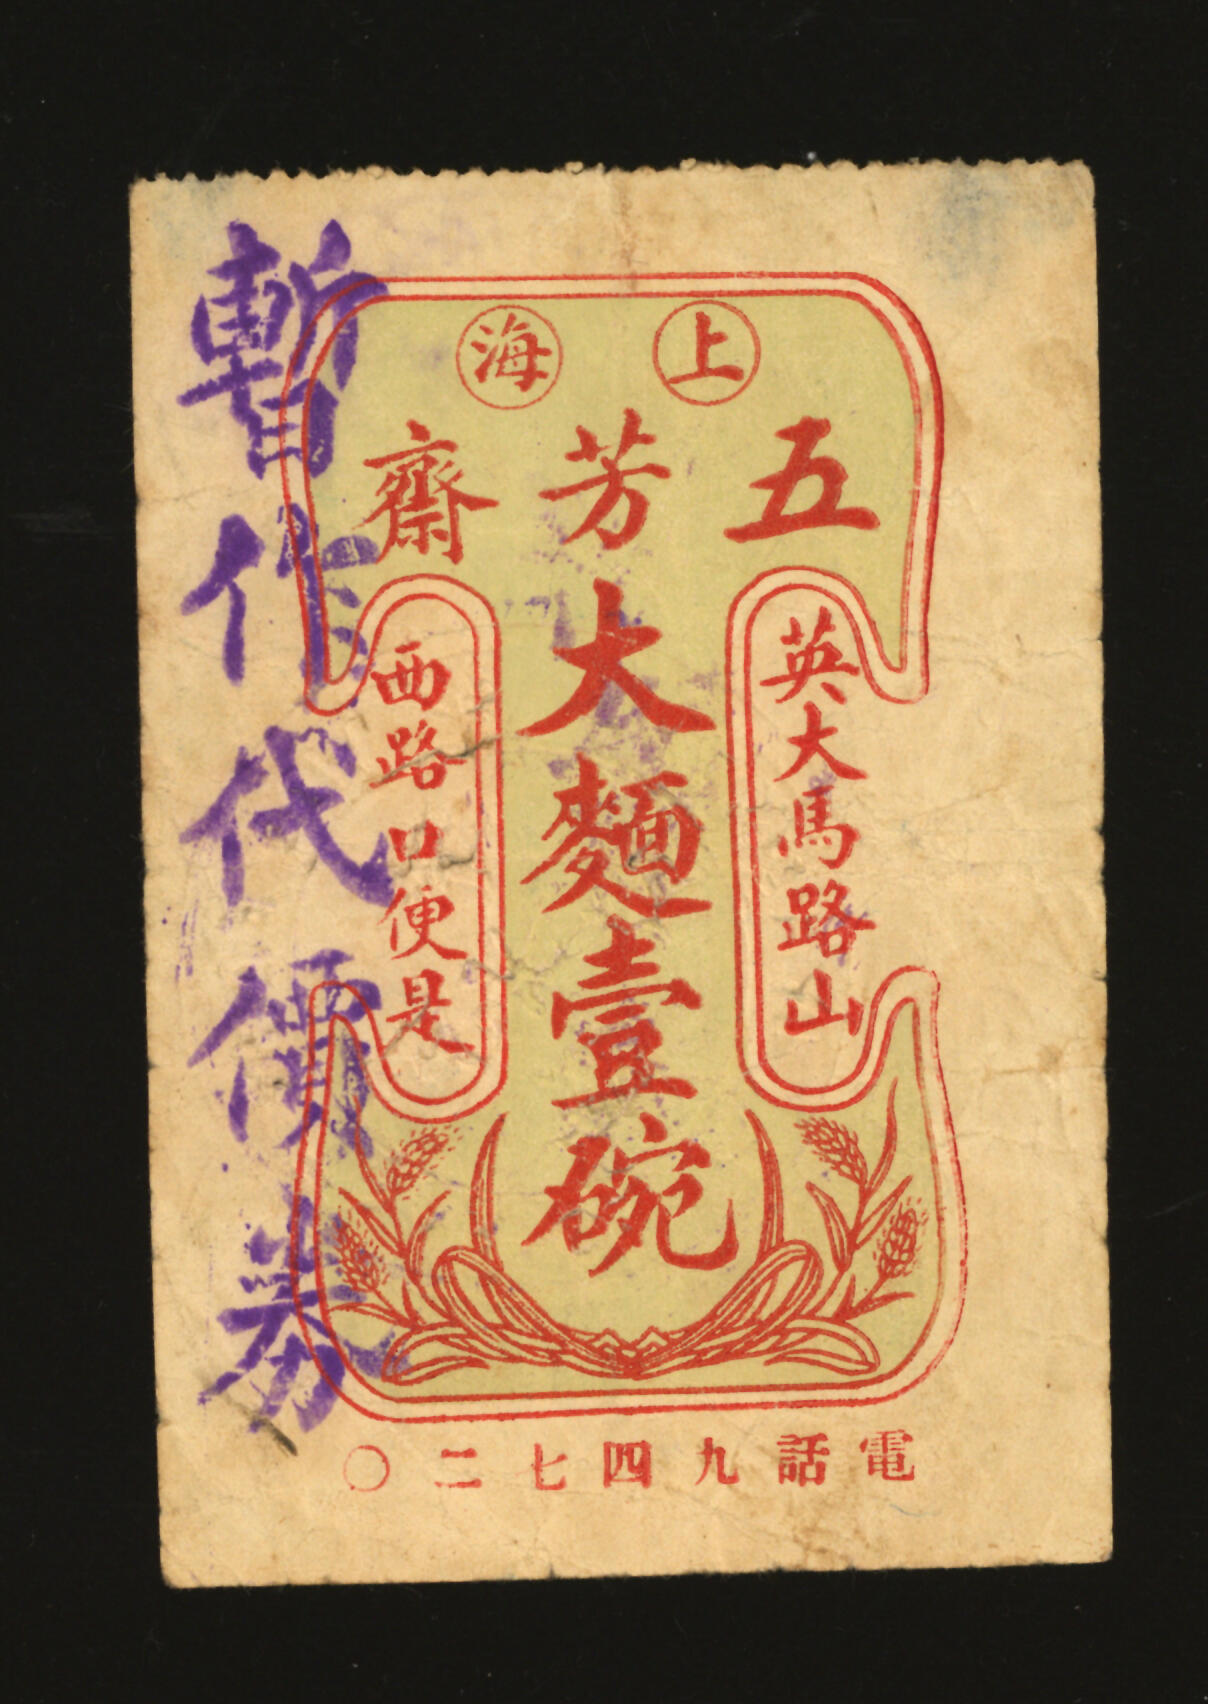 上海
五芳齋
大麵壹碗
英大馬路山
西路口便是
電話九四七二〇
暫作代價券